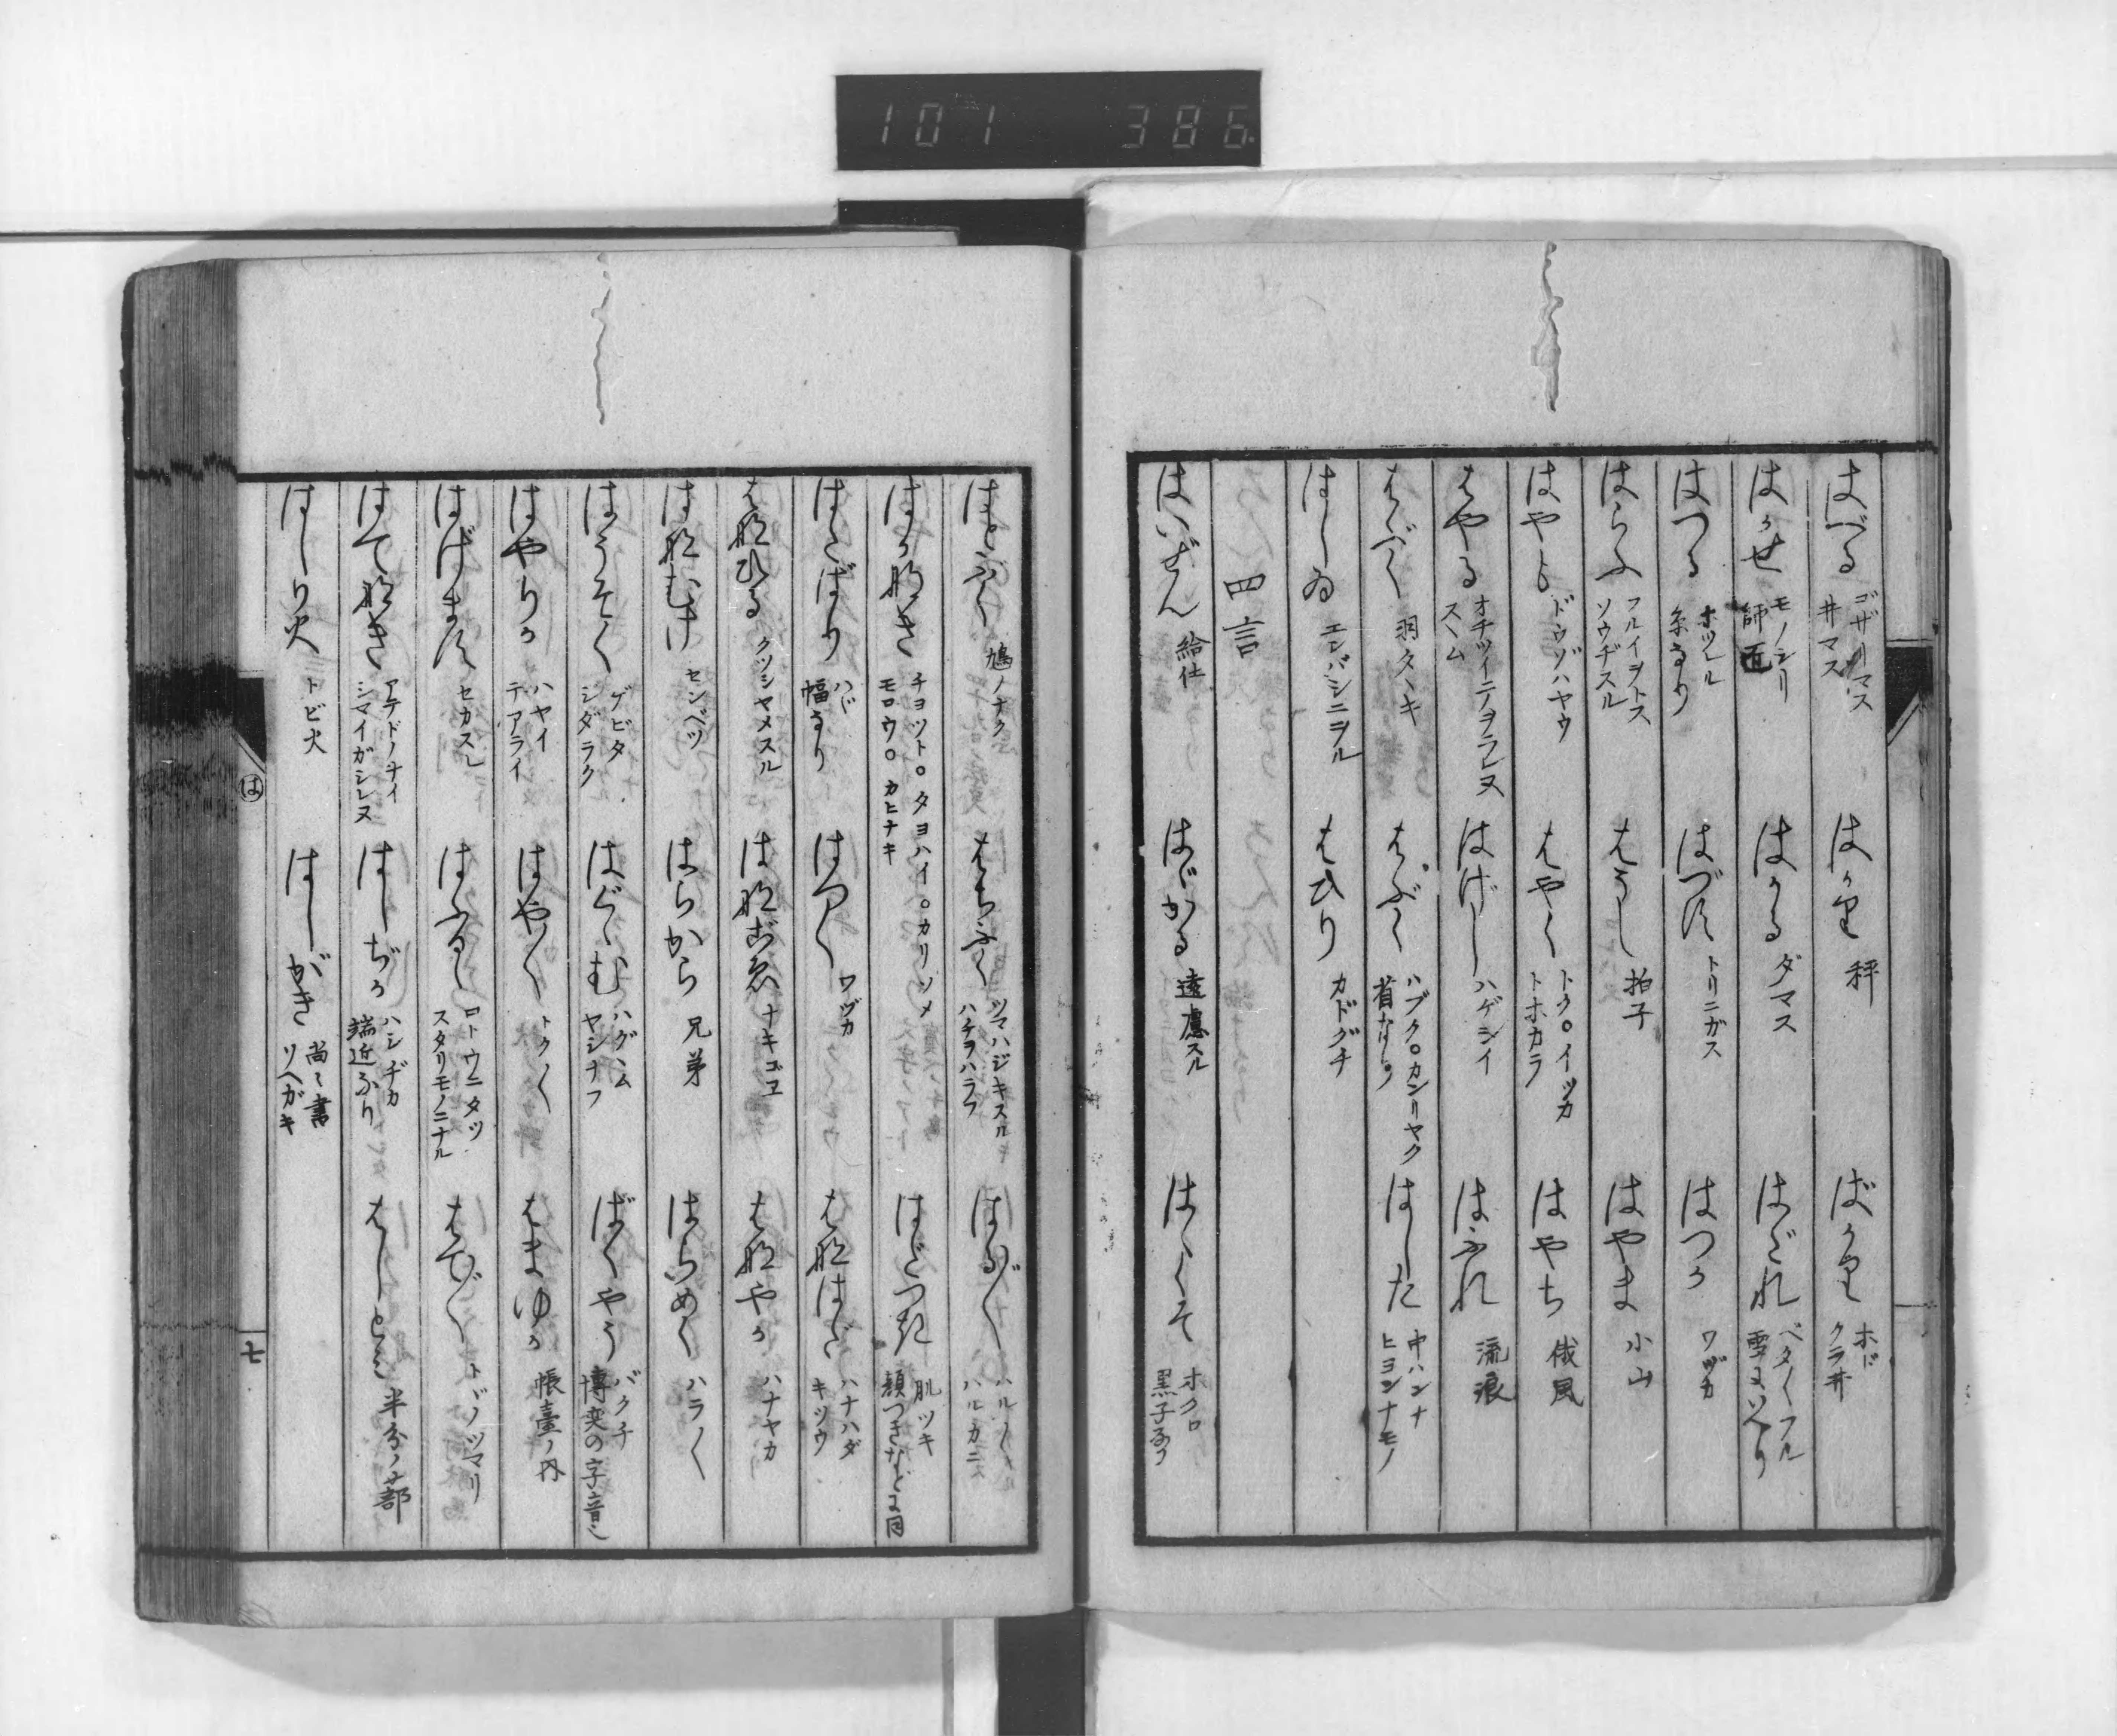 101 386
はべる ゴザリマス 井マス
はかり 秤
ばかり ホド クラ井
はかせ モノシリ 師匠
はかる ダマス
はだれ ベタ〱フル 雪にいへり
はつる ホツレル 糸なり
はづす トリニガス
はつか ワヅカ
はらふ フルイヲトス ソウヂスル
はうし 拍子
はやま 小山
はやも ドウゾハヤウ
はやく トク○イツカ トホカラ
はやち 俄風
はやる オチツイニテヲラレヌ スヽム
はげし ハゲシイ
はふれ 流浪
はぶく 羽タヽキ
はぶく ハブク○カンリヤク 省なり
はした 中ハンナ ヒヨンナモノ
はしゐ エンバシニヲル
はひり カドグチ
四言
はいぜん 給仕
はゞかる 遠慮スル
はゝくそ ホクロ 黒子なり
はとふく 鳩ノナク
はちふく ツマハジキスル ハチヲハラフ
はるばる
はかなき チヨツト○タヨハイ○カリソメ モロウ○カヒナキ
はだつき 肌ツキ 顔つきなどに同
はたばり ハヾ 幅なり
はつ〱 ワヅカ
はなはだ ハナハダ キツウ
はなひる クツシヤメスル
はなごゑ ナキゴヱ
はなやか ハナヤカ
はなむけ センベツ
はらから 兄弟
はらめく ハラ〱
はうぞく ゲビタ シダラク
はぐゝむ ハグヽム ヤシナフ
ばくやう バクチ 博奕の字音也
はやりか ハヤイ テアライ
はや〱 トク〱
はまゆか 帳臺ノ内
はげます セカスル
はふるゝ ロトウニタツ スタリモノニナル
はてなき アテドノナイ シマイガシレヌ
はしぢか ハシヂカ 端近なり
はしとみ 半分ノ蔀
はしり火 トビ火
はしがき 尚々書 ソヘガキ
は
七